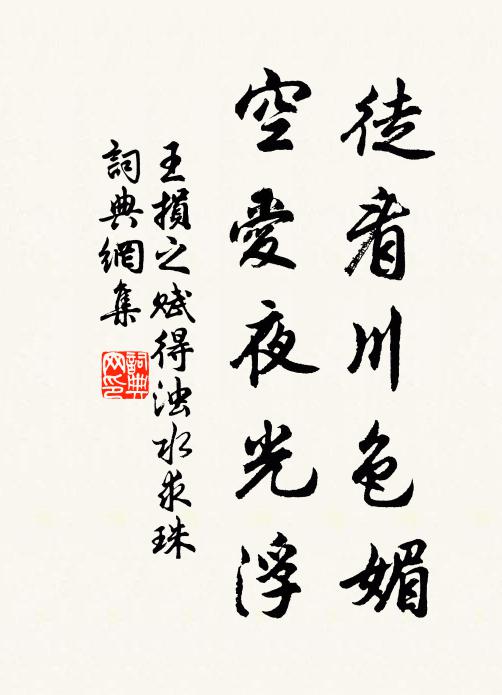 徒看川色媚
空愛夜光浮
王損之賦得浊水求珠
詞典網集
詞典网印